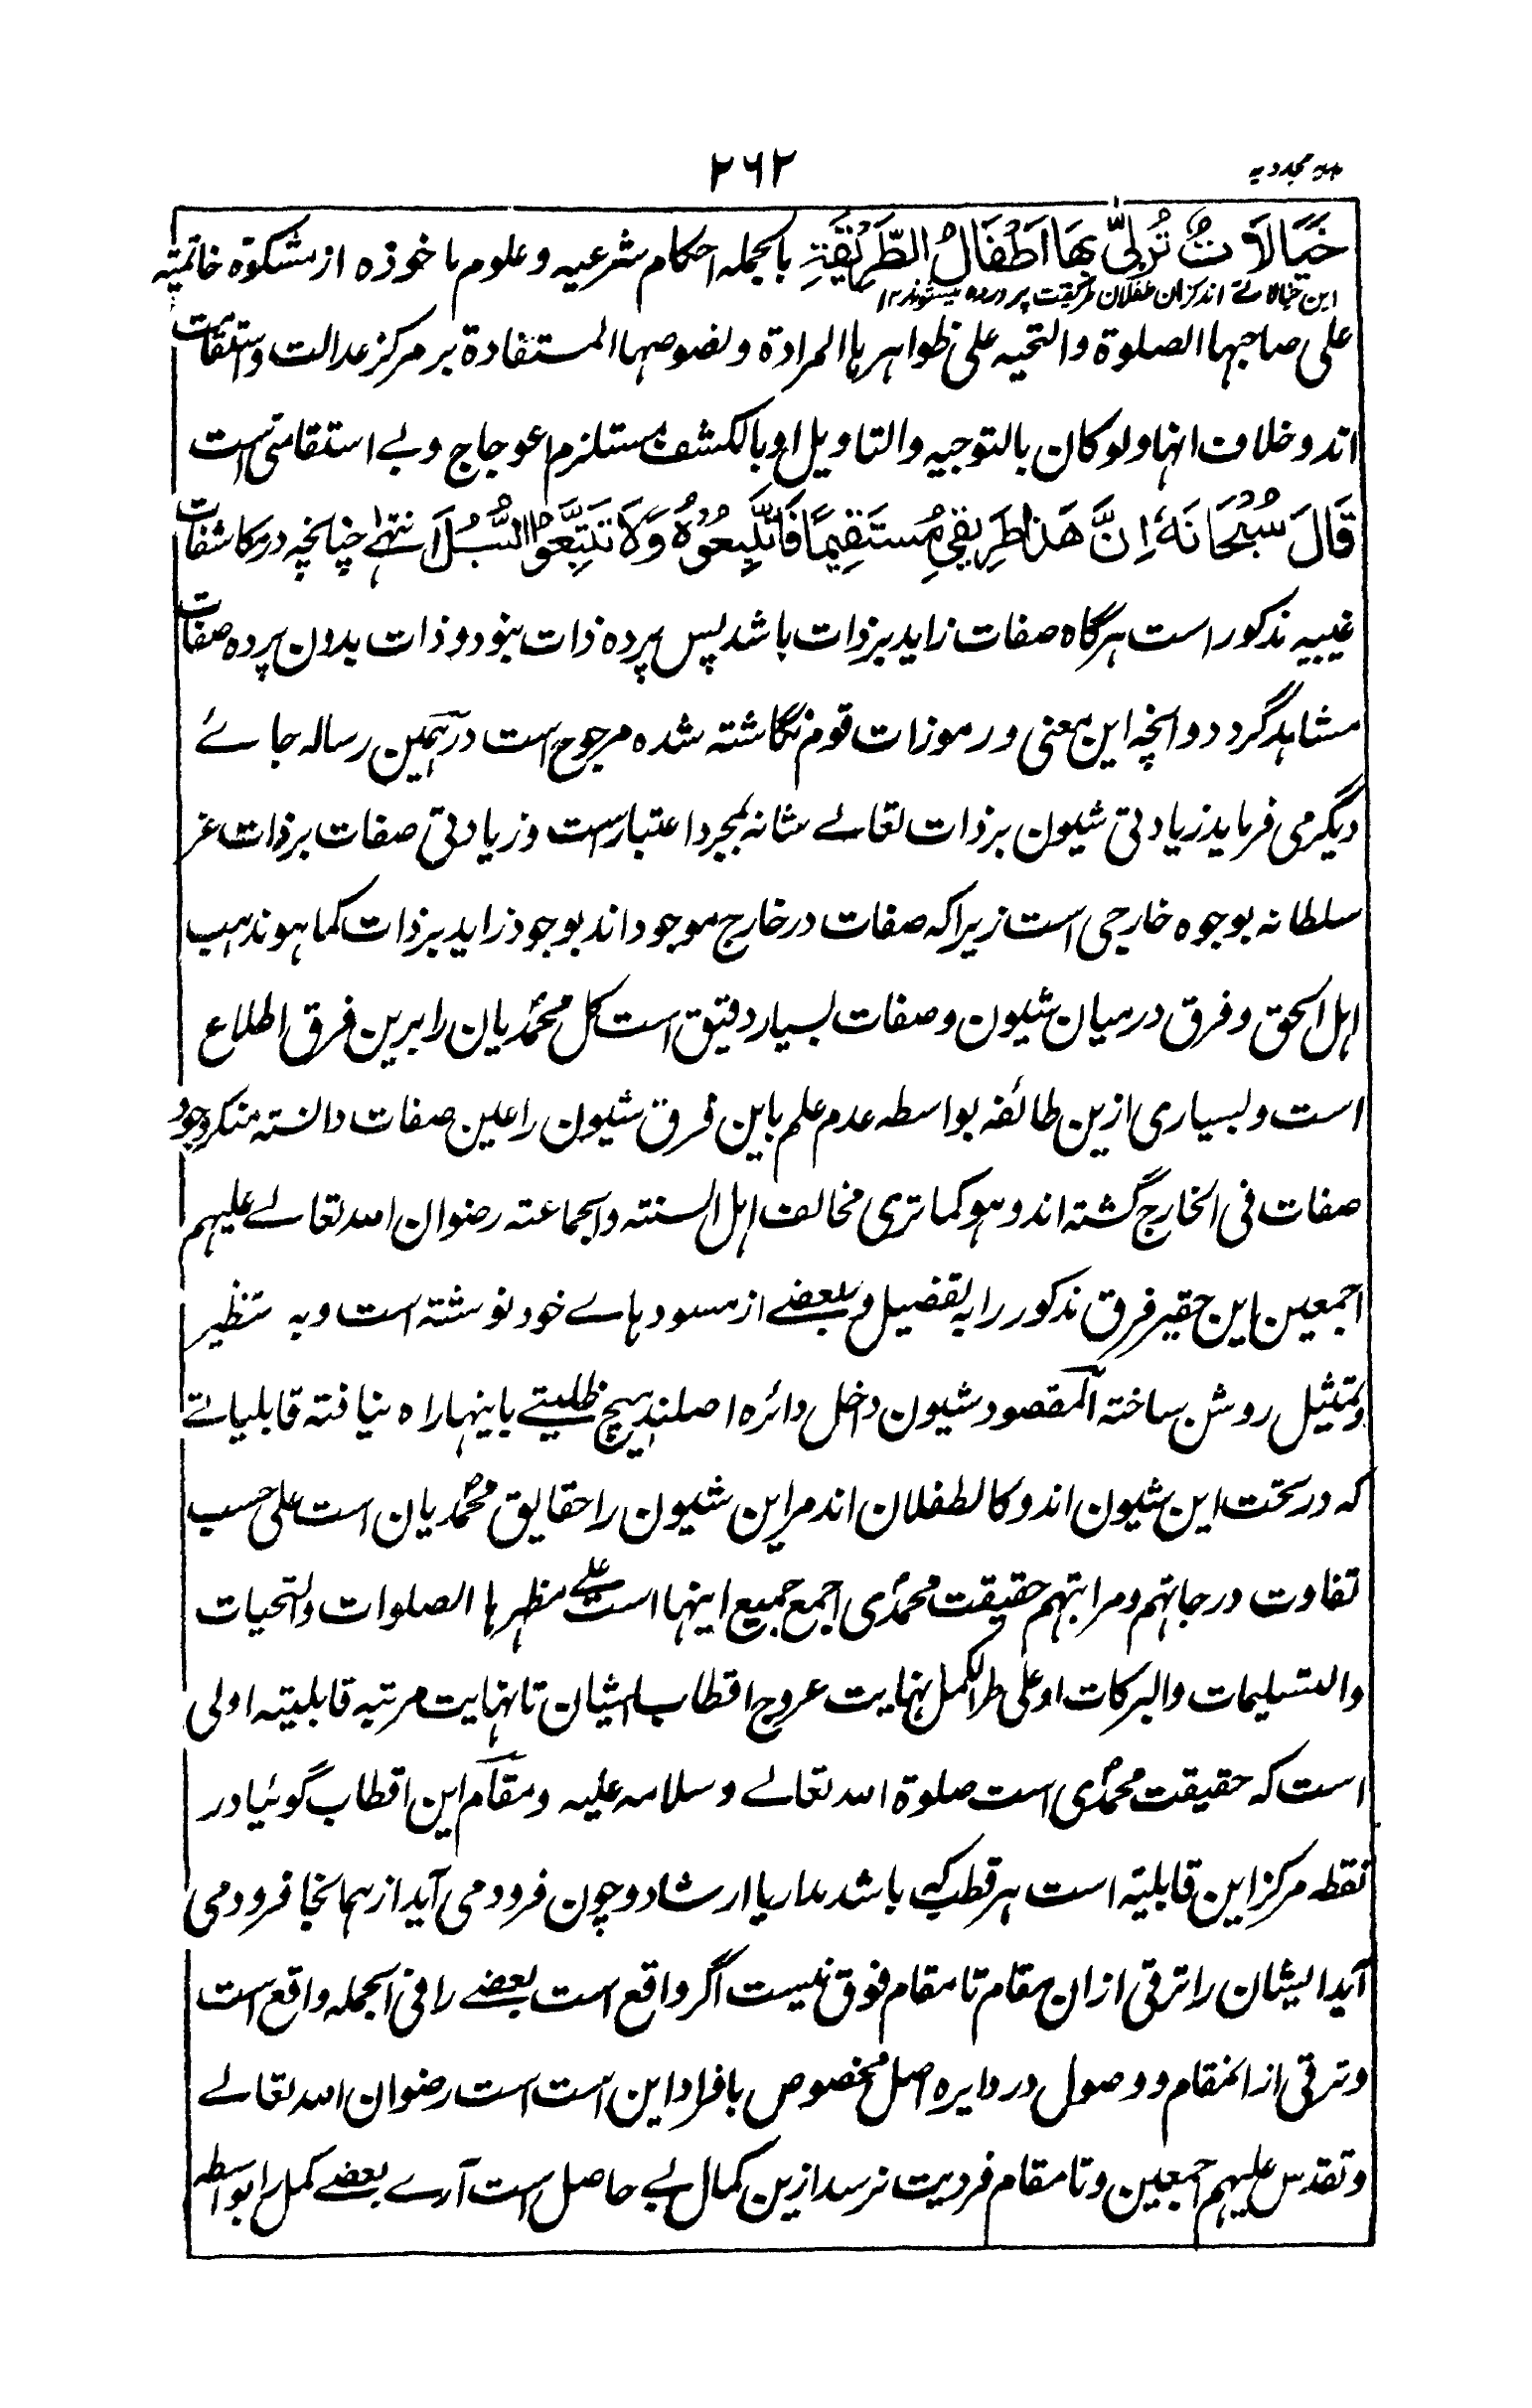 مجددیه
۲۶۲
خَيَالَاتٌ تُرَبّٰی بِهَا اَطْفَالُ الطَّرِيْقَةِ بالجمله احکام شرعیه و علوم ماخوذه از مشکوة خاتمیته
این خیالاتے اندکزان طفلان طریقت پرورده میشوند۱۲
علی صاحبها الصلوة والتحیه علی ظواهرها المرادة و نصوصها المستفادة بر مرکز عدالت و استقامت
اند و خلاف انها ولو کان بالتوجیه والتاویل او بالکشف مستلزم اعوجاج و بے استقامتی است
قَالَ سُبْحَانَهٗ اِنَّ هَذَا طَرِيقِي مُسْتَقِيمًا فَاتَّبِعُوْهُ وَلَا تَتَّبِعُوا السُّبُلَ انتهٰے چنانچه در مکاشفات
غیبیه مذکور است هرگاه صفات زاید بر ذات باشد پس پرده ذات بنود و ذات بدون پرده صفات
مشاهد گردد و انچه این معنی و رموزات قوم نگاشته شده مرجوح است در همین رساله جائے
دیگر می فرماید زیادتی شیون بر ذات تعالے شانه بمجرد اعتبار است و زیادتی صفات بر ذات عز
سلطانه بوجوه خارجی است زیرا که صفات در خارج موجود اند بوجود زاید بر ذات کما هو مذهب
اهل الحق و فرق درمیان شیون و صفات بسیار دقیق است کل محمدیان را برین فرق اطلاع
است و بسیاری ازین طائفه بواسطه عدم علم باین فرق شیون را عین صفات دانسته منکر وجود
صفات فی الخارج گشته اند و هو کما تری مخالف اهل السنته والجماعته رضوان الله تعالے علیهم
اجمعین باین حقیر فرق مذکور را به تفصیل و بعضے از مسودهاے خود نوشته است و به تنظیر
و تمثیل روشن ساخته المقصود شیون داخل دائره اصلند هیچ ظلیتے باینها راه نیافته قابلیاتے
که در تحت این شیون اند و کالطفلان اند مر این شیون را حقایق محمدیان است علی حسب
تفاوت درجاتهم و مراتبهم حقیقت محمدی اجمع جمیع اینها است علے مظهرها الصلوات والتحیات
والتسلیمات والبرکات او علی طر الکمل نهایت عروج اقطاب ایشان تا نهایت مرتبه قابلیته اولی
است که حقیقت محمدی است صلوة الله تعالے و سلامه علیه و مقام این اقطاب گوئیا در
نقطه مرکز این قابلیته است هر قطب که باشد مدار یا ارشاد و چون فرود می آید از همانجا فرود می
آید ایشان را ترقی ازان مقام تا مقام فوق نیست اگر واقع است بعضے را فی الجمله واقع است
و ترقی از انمقام و وصول در دایره اصل مخصوص بافراد این است است رضوان الله تعالے
و تقدس علیهم اجمعین و تا مقام فردیت نرسد ازین کمال بے حاصل است آرے بعضے کمل را بواسطه